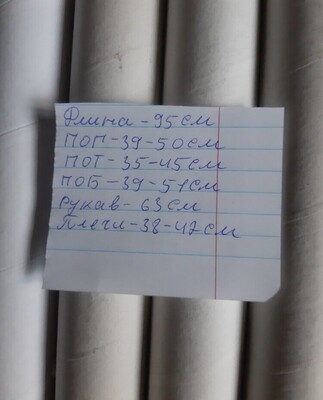 Длина - 95 см
ПОГ - 39 - 50 см
ПОТ - 35 - 45 см
ПОБ - 39 - 51 см
рукав - 63 см
Плечи - 38 - 42 см